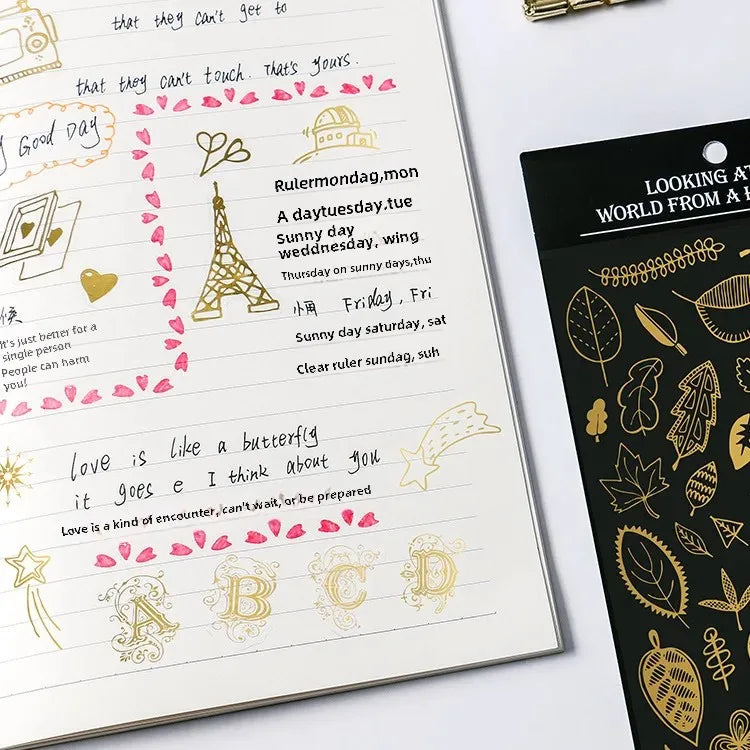 that they can't get to
that they can't touch. That's yours.
GOOD DAY
Rulermondag,mon
A daytuesday.tue
Sunny day
weddnesday, wing
Thursday on sunny days,thu
Friday, Fri
Sunny day saturday, sat
Clear ruler sundag, suh
候
It's just better for a
single person
People can harm
you!
love is like a butterfly
it goes e I think about you
Love is a kind of encounter, can't wait, or be prepared
A B C D
LOOKING AT
WORLD FROM A